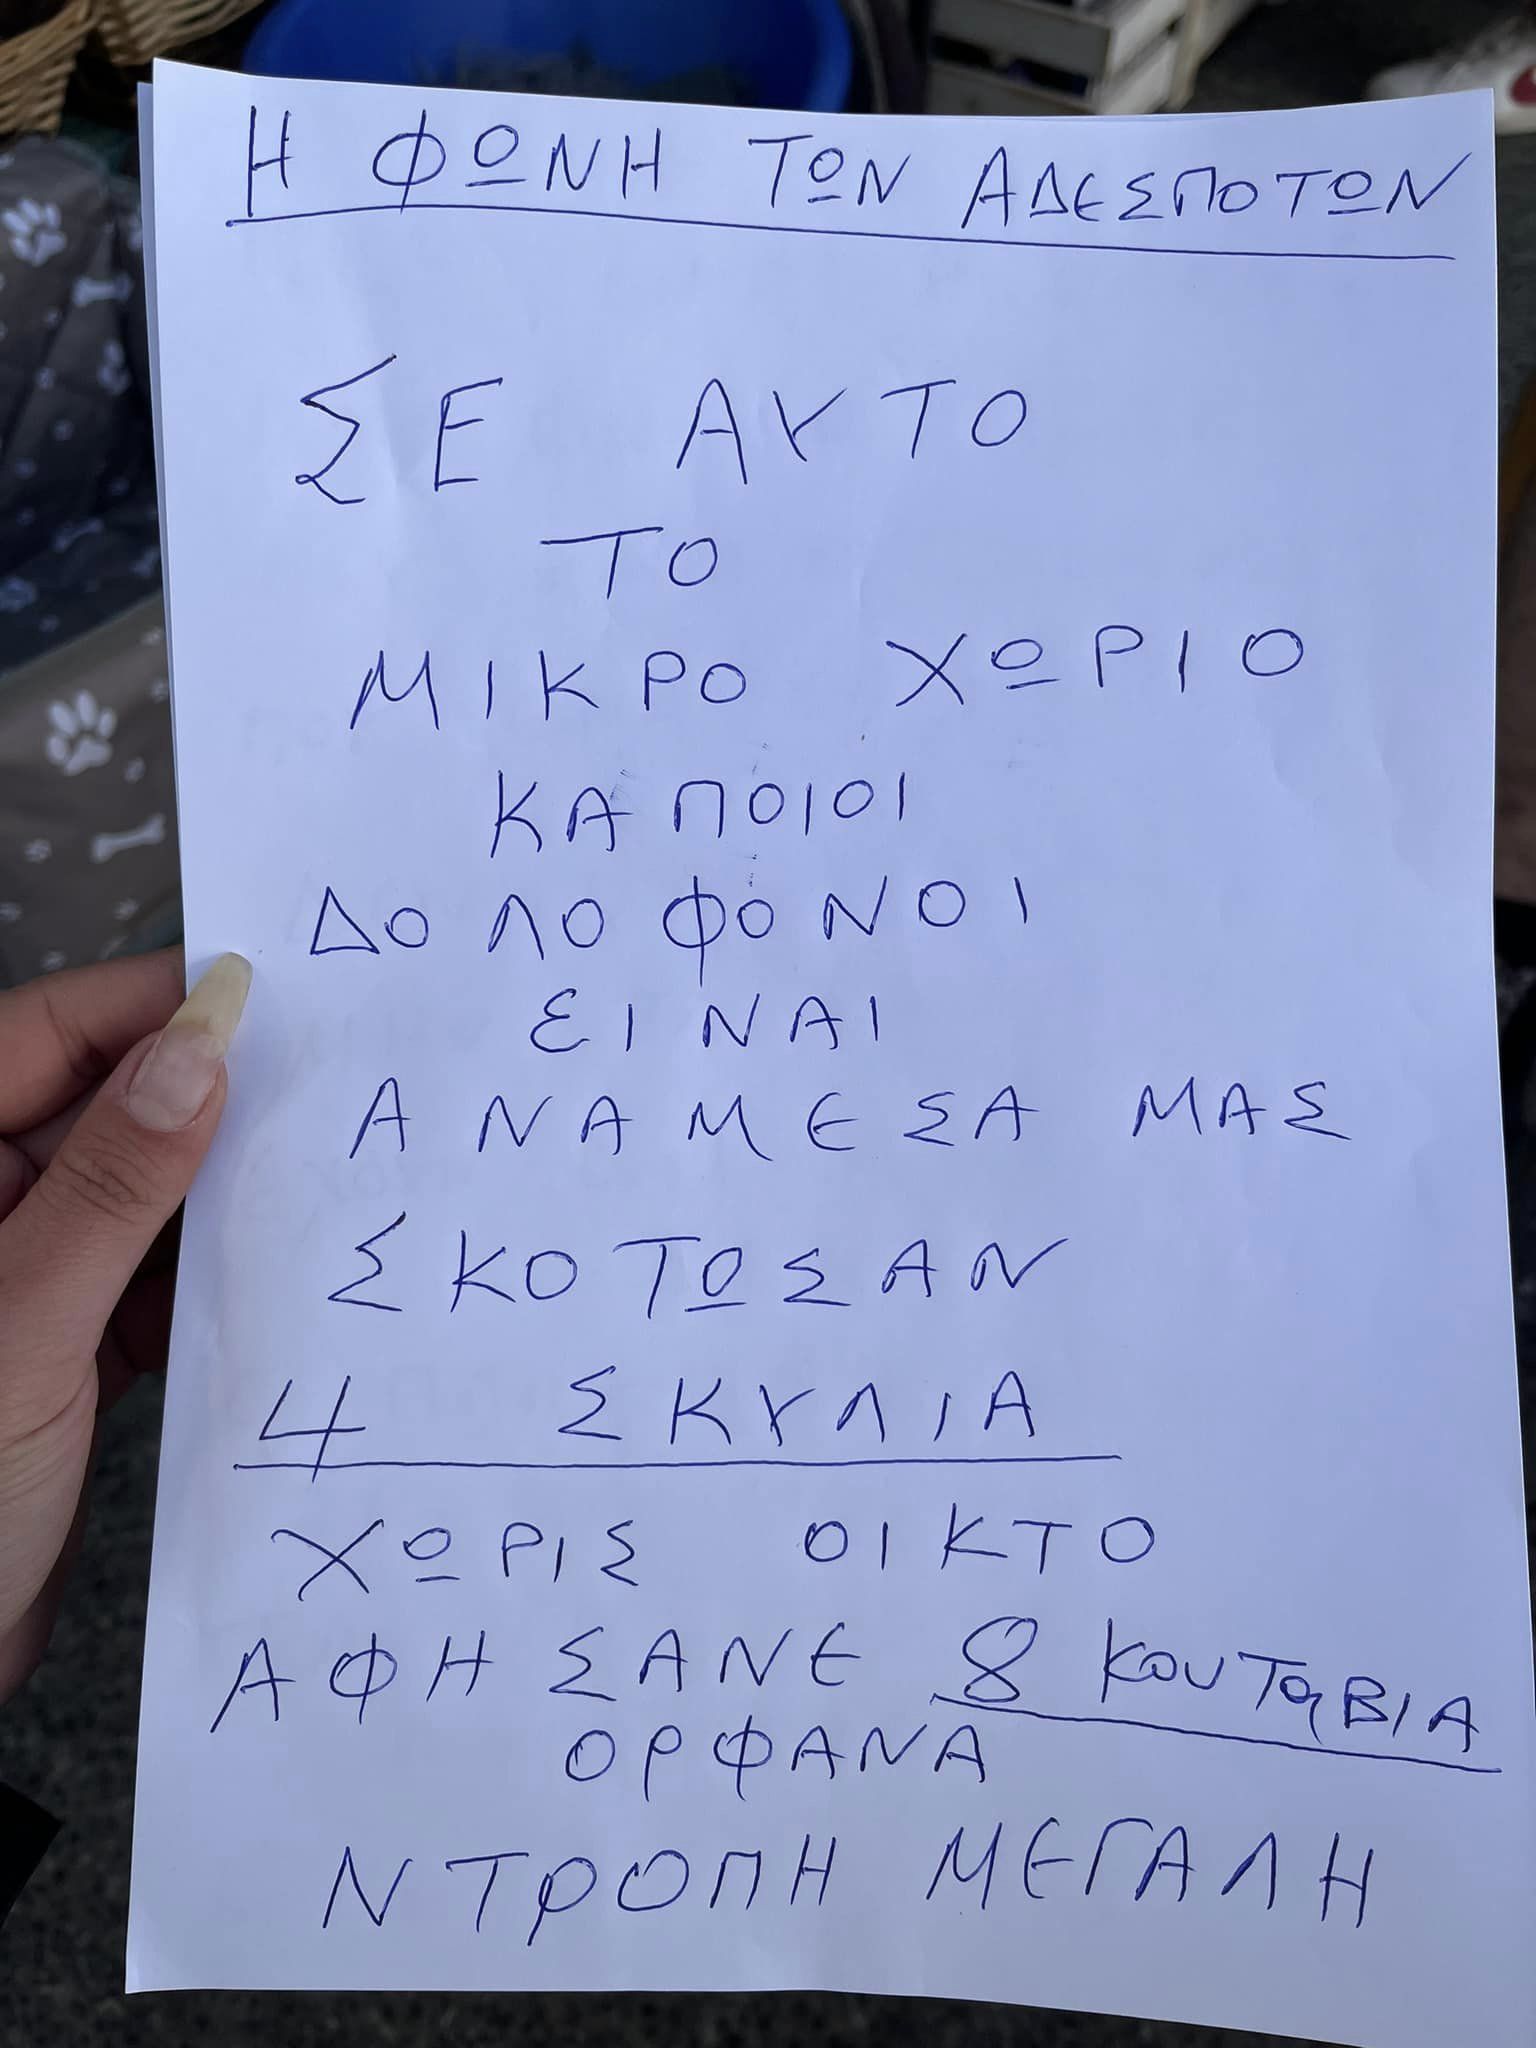 Η ΦΩΝΗ ΤΩΝ ΑΔΕΣΠΟΤΩΝ
ΣΕ ΑΥΤΟ
ΤΟ
ΜΙΚΡΟ ΧΩΡΙΟ
ΚΑΠΟΙΟΙ
ΔΟΛΟΦΟΝΟΙ
ΕΙΝΑΙ
ΑΝΑΜΕΣΑ ΜΑΣ
ΣΚΟΤΩΣΑΝ
4 ΣΚΥΛΙΑ
ΧΩΡΙΣ ΟΙΚΤΟ
ΑΦΗΣΑΝΕ 8 ΚΟΥΤΑΒΙΑ
ΟΡΦΑΝΑ
ΝΤΡΟΠΗ ΜΕΓΑΛΗ